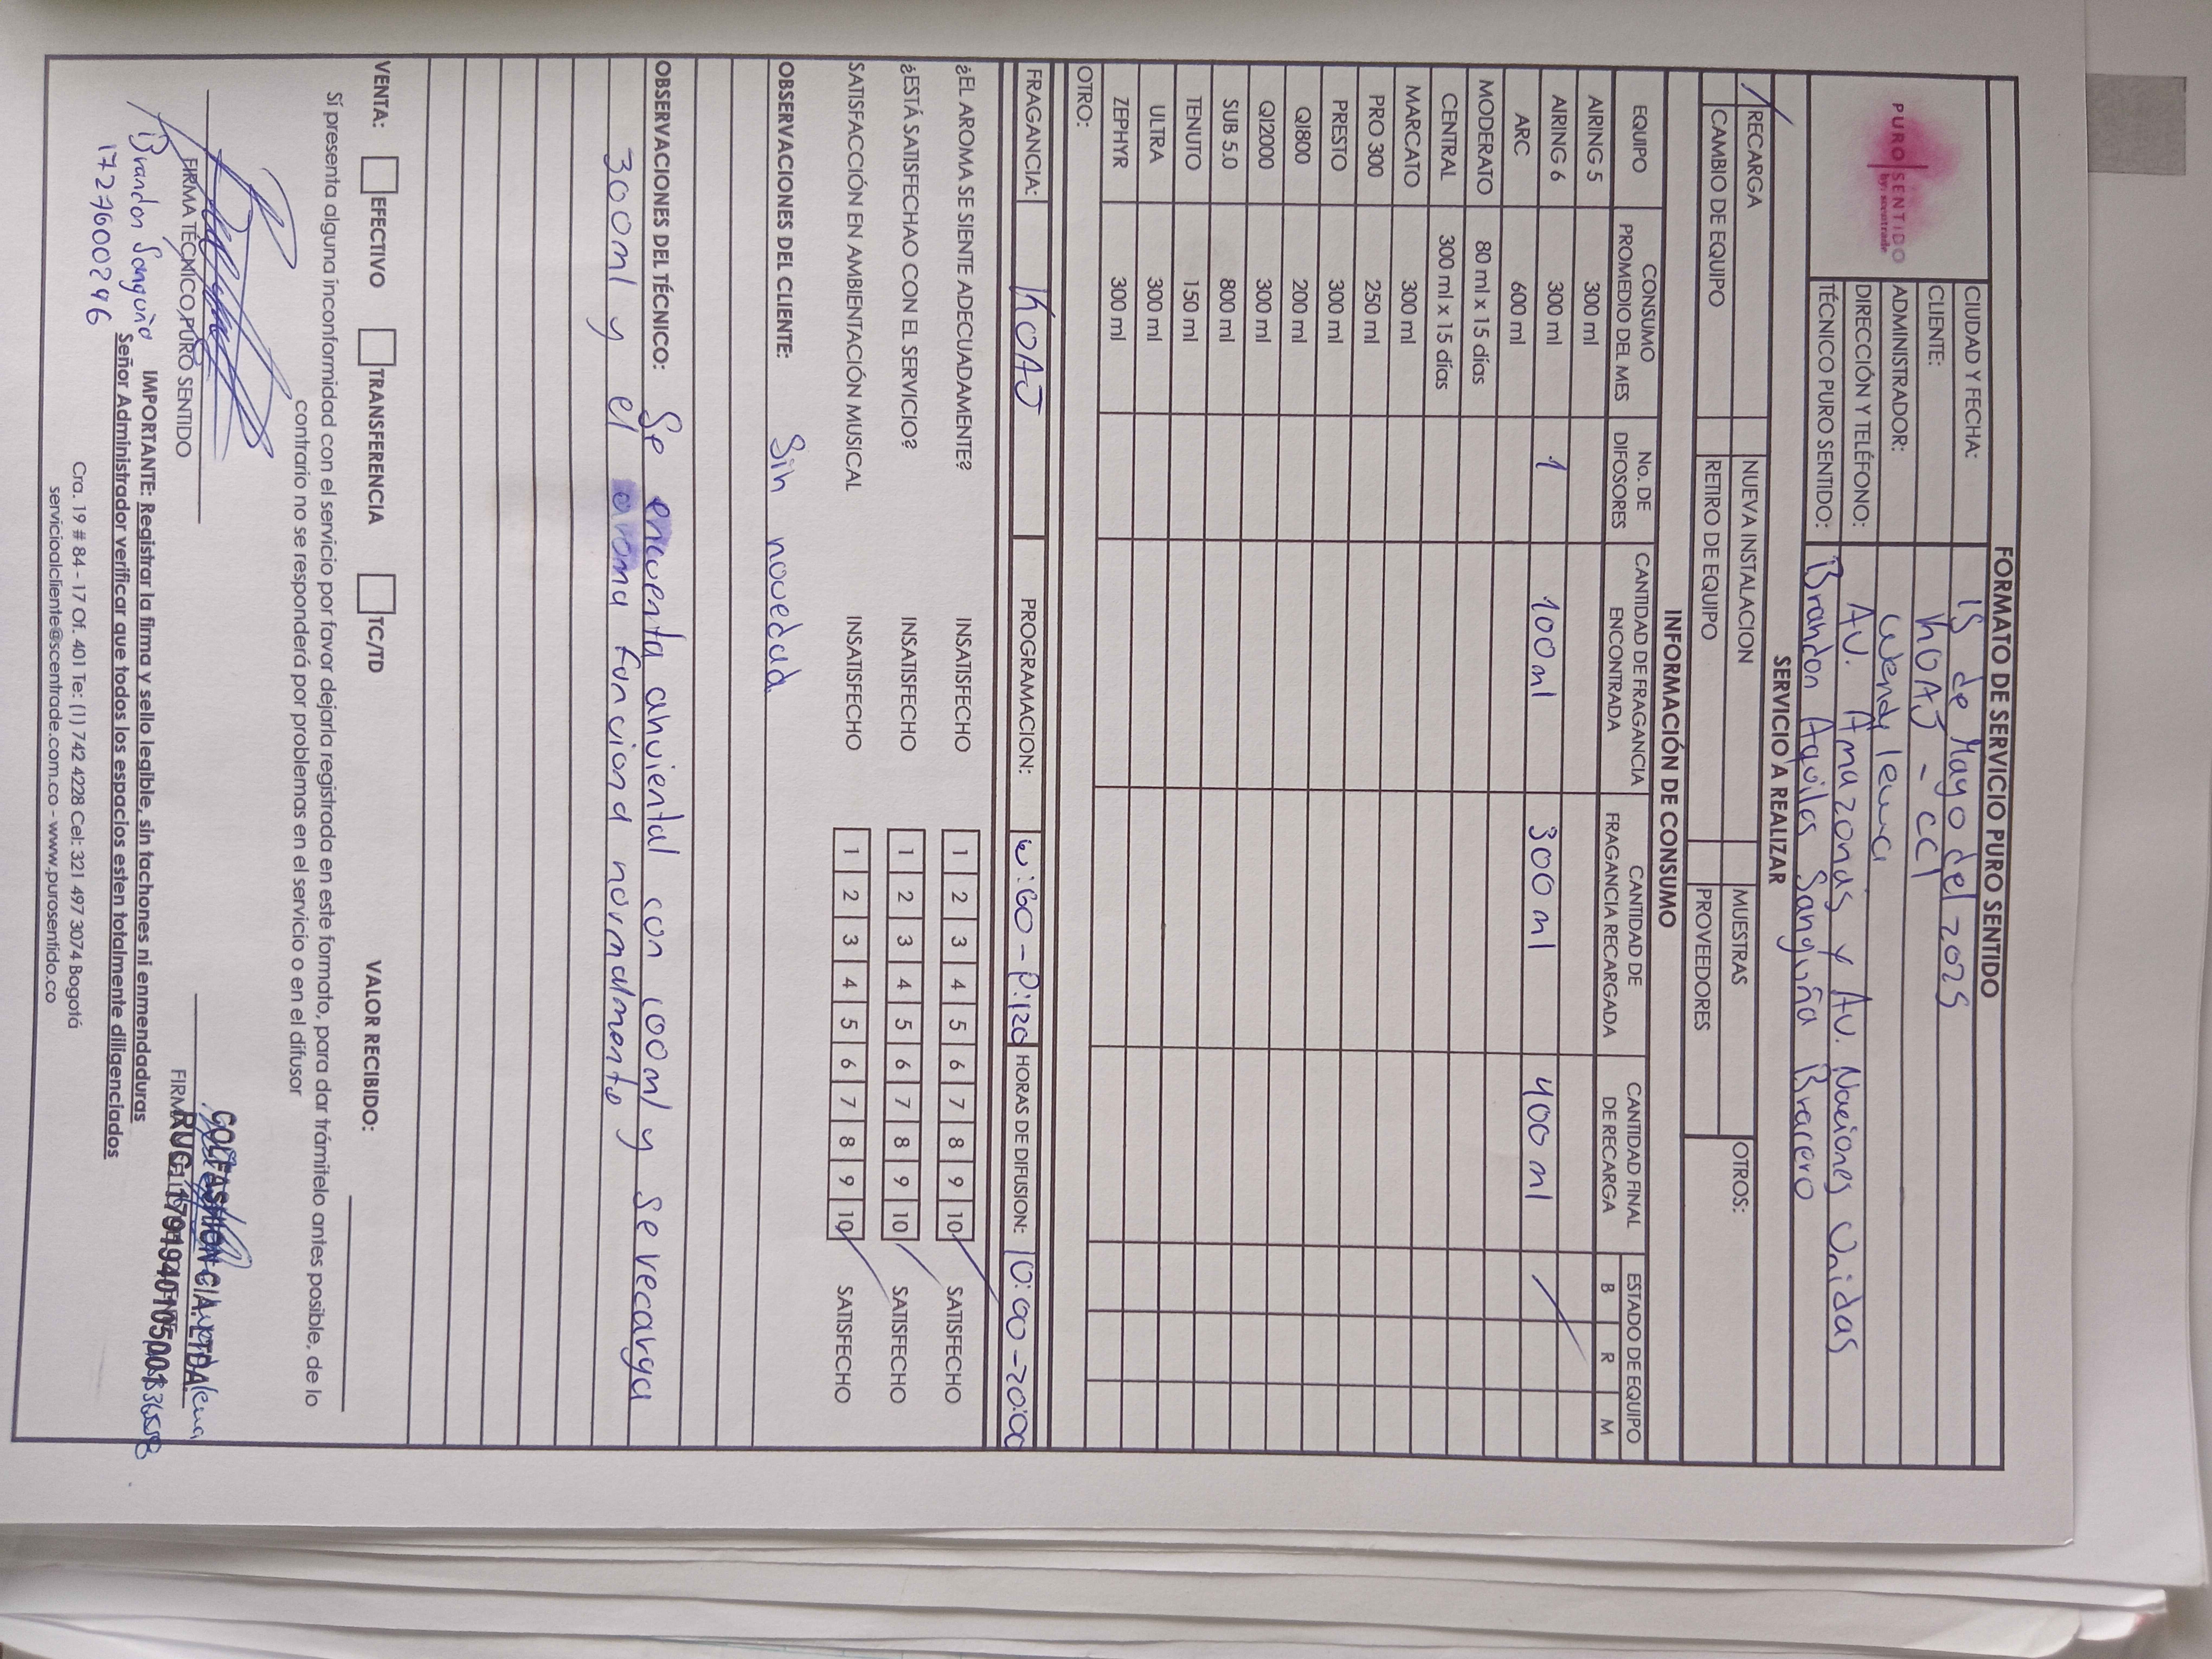 FORMATO DE SERVICIO PURO SENTIDO
PURO SENTIDO
by: scentrade
CIUDAD Y FECHA: 15 de Mayo del 2025
CLIENTE: KOAJ - CCI
ADMINISTRADOR: Wendy lema
DIRECCIÓN Y TELÉFONO: AV. Amazonas y Av. Naciones Unidas
TÉCNICO PURO SENTIDO: Brandon Aquiles Sanguña Bracero
SERVICIO A REALIZAR
RECARGA NUEVA INSTALACION MUESTRAS OTROS:
CAMBIO DE EQUIPO RETIRO DE EQUIPO PROVEEDORES
INFORMACIÓN DE CONSUMO
EQUIPO CONSUMO PROMEDIO DEL MES No. DE DIFOSORES CANTIDAD DE FRAGANCIA ENCONTRADA CANTIDAD DE FRAGANCIA RECARGADA CANTIDAD FINAL DE RECARGA ESTADO DE EQUIPO
B R M
AIRING 5 300 ml
AIRING 6 300 ml 1 100ml 300 ml 400 ml
ARC 600 ml
MODERATO 80 ml x 15 días
CENTRAL 300 ml x 15 días
MARCATO 300 ml
PRO 300 250 ml
PRESTO 300 ml
QI800 200 ml
QI2000 300 ml
SUB 5.0 800 ml
TENUTO 150 ml
ULTRA 300 ml
ZEPHYR 300 ml
OTRO:
FRAGANCIA: KOAJ PROGRAMACION: W:60 - P:120 HORAS DE DIFUSION: 10:00 - 20:00
¿EL AROMA SE SIENTE ADECUADAMENTE? INSATISFECHO 1 2 3 4 5 6 7 8 9 10 SATISFECHO
¿ESTÁ SATISFECHAO CON EL SERVICIO? INSATISFECHO 1 2 3 4 5 6 7 8 9 10 SATISFECHO
SATISFACCIÓN EN AMBIENTACIÓN MUSICAL INSATISFECHO 1 2 3 4 5 6 7 8 9 10 SATISFECHO
OBSERVACIONES DEL CLIENTE: Sin novedad
OBSERVACIONES DEL TÉCNICO: Se encuenta anviental con 100ml y se recarga
300ml y el aroma funciona normalmente
VENTA: EFECTIVO TRANSFERENCIA TC/TD VALOR RECIBIDO:
Sí presenta alguna inconformidad con el servicio por favor dejarla registrada en este formato, para dar trámitelo antes posible, de lo
contrario no se responderá por problemas en el servicio o en el difusor
COLFASHION CIA. LTDA.
RUC. 1791940105001
FIRMA TÉCNICO PURO SENTIDO
Brandon Sanguña
1727600296
IMPORTANTE: Registrar la firma y sello legible, sin tachones ni enmendaduras
Señor Administrador verificar que todos los espacios esten totalmente diligenciados
Cra. 19 # 84 - 17 Of. 401 Te: (1) 742 4228 Cel: 321 497 3074 Bogotá
servicioalcliente@scentrade.com.co - www.purosentido.co